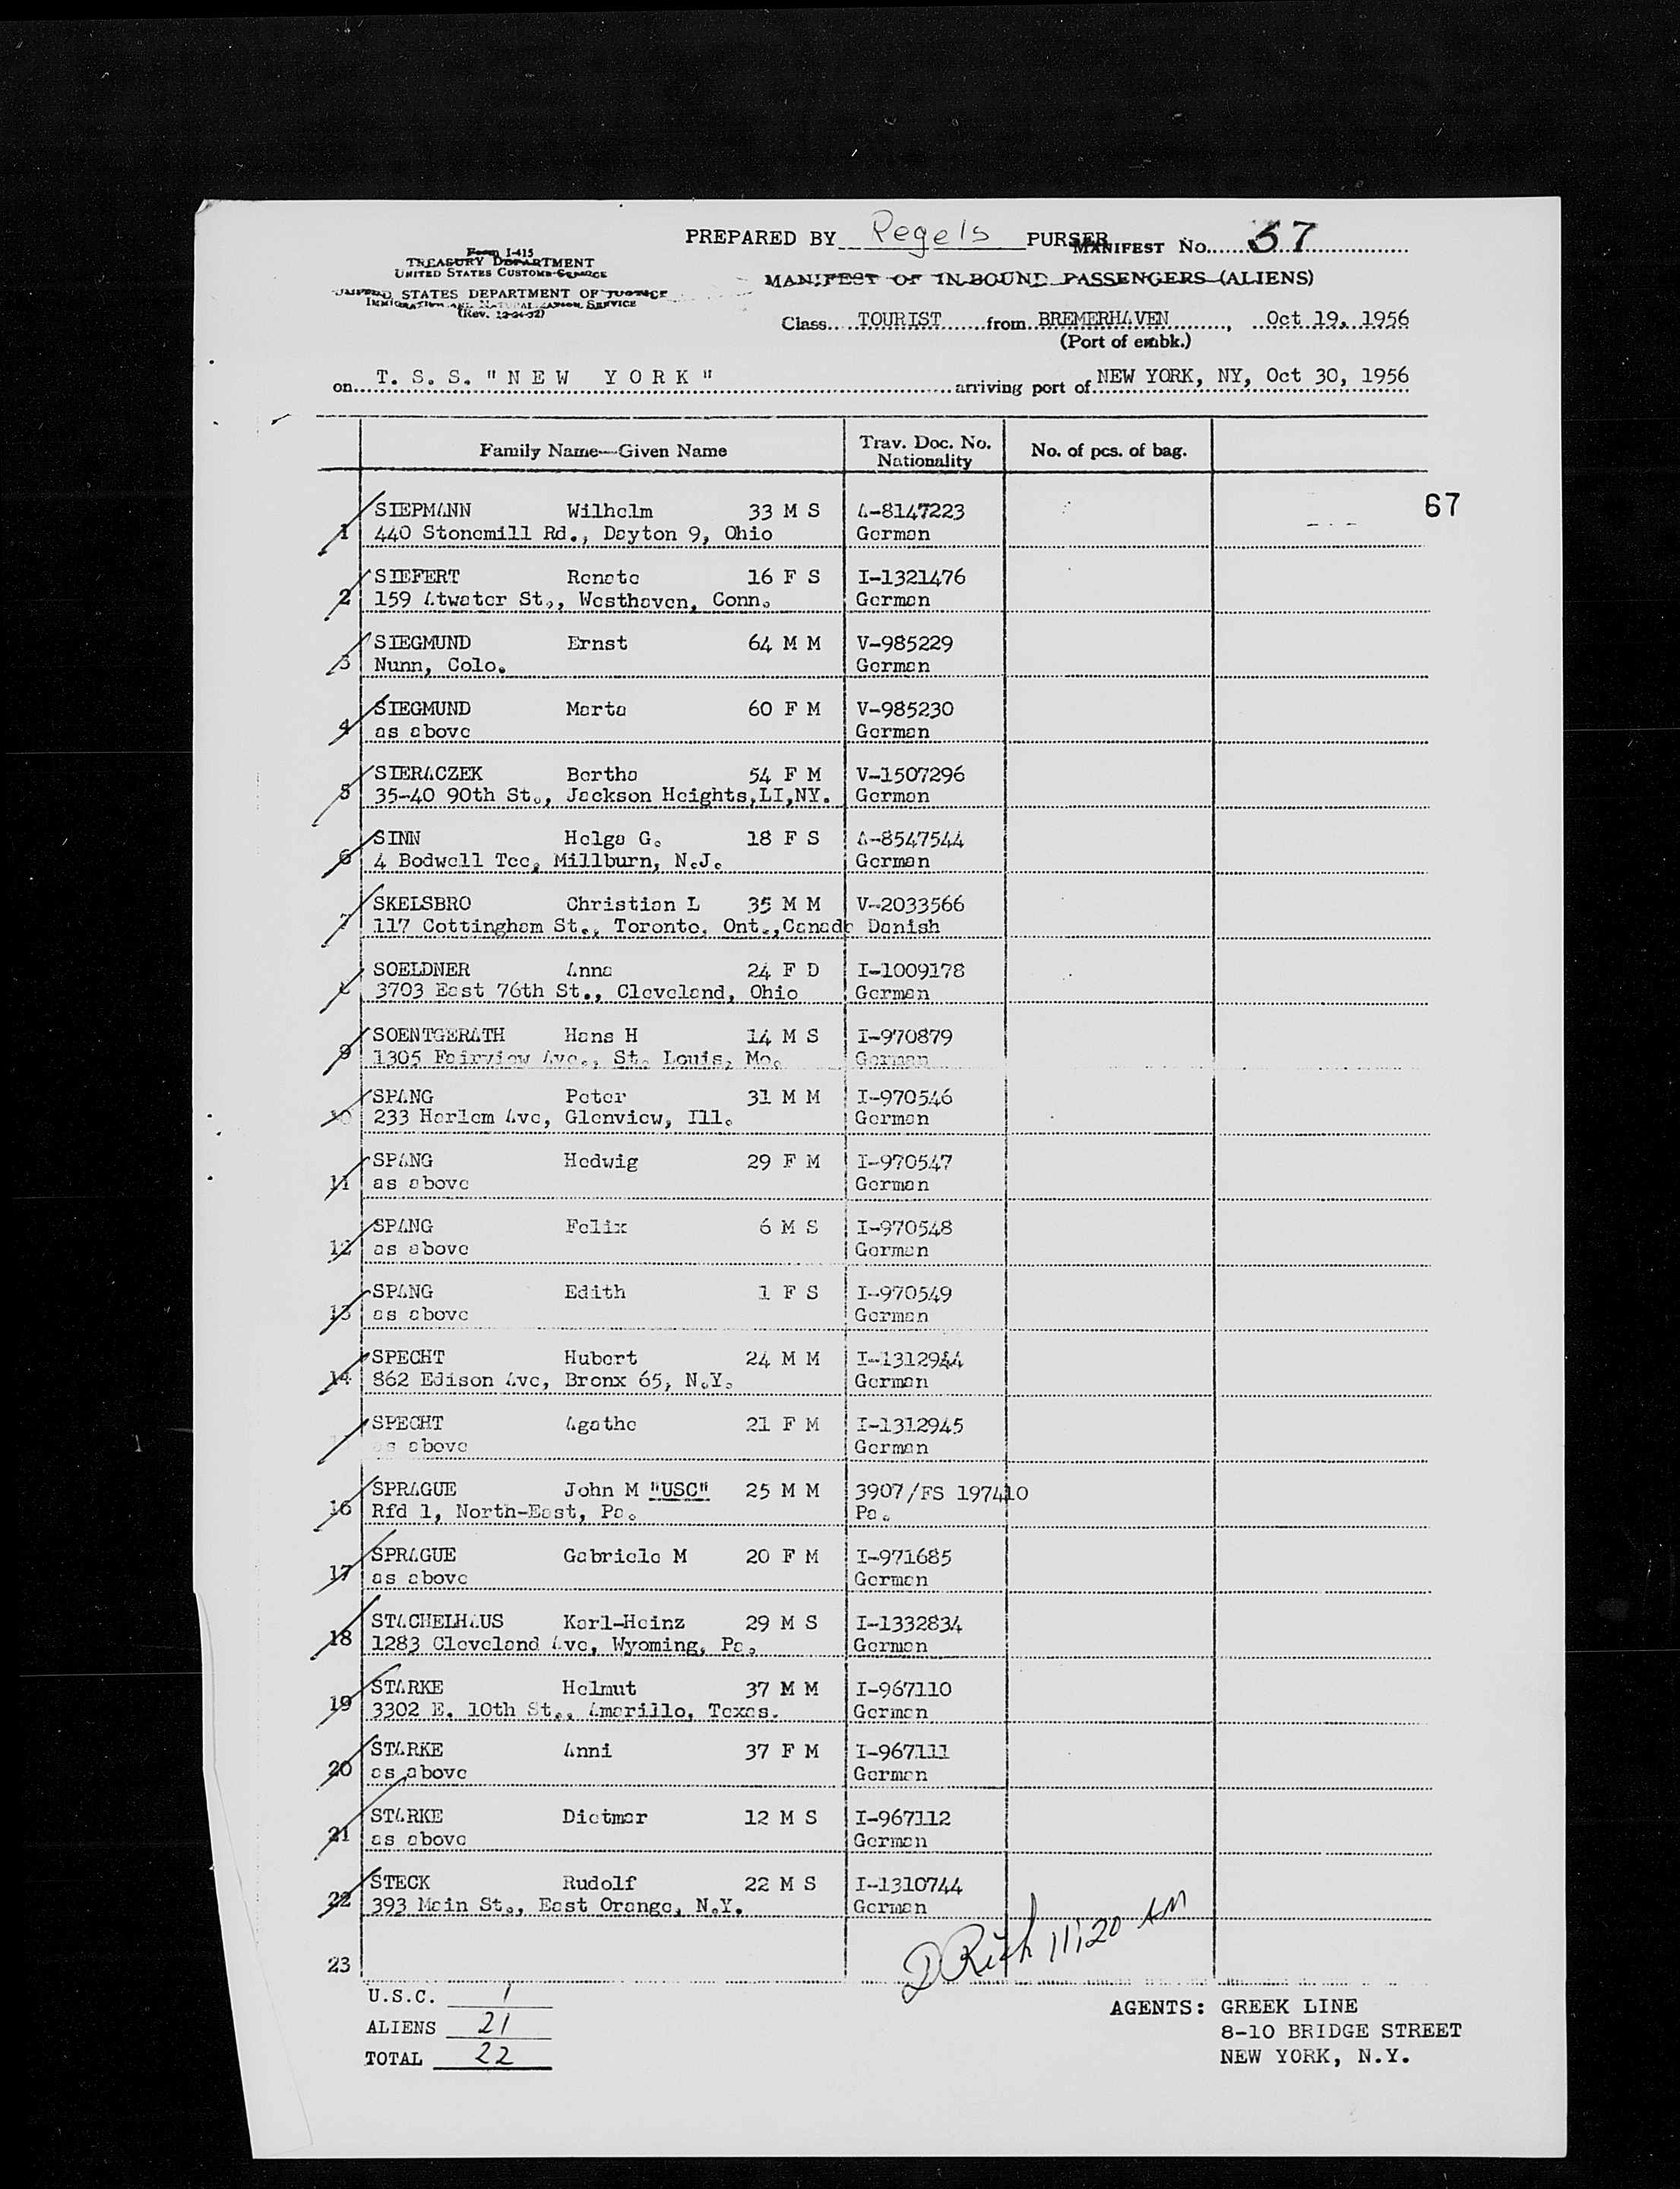 PREPARED BY Regels PURSER MANIFEST No. 37
Form I-415
TREASURY DEPARTMENT
UNITED STATES CUSTOMS SERVICE
UNITED STATES DEPARTMENT OF JUSTICE
IMMIGRATION AND NATURALIZATION SERVICE
MANIFEST OF IN-BOUND PASSENGERS (ALIENS)
Class TOURIST from BREMERHAVEN, Oct 19, 1956
(Port of embk.)
on T. S. S. "NEW YORK" arriving port of NEW YORK, NY, Oct 30, 1956
Family Name—Given Name Trav. Doc. No. Nationality No. of pcs. of bag.
67
1 SIEPMANN Wilhelm 33 M S A-8147223
440 Stonemill Rd., Dayton 9, Ohio German
2 SIEFERT Renate 16 F S I-1321476
159 Atwater St., Westhaven, Conn. German
3 SIEGMUND Ernst 64 M M V-985229
Nunn, Colo. German
4 SIEGMUND Marta 60 F M V-985230
as above German
5 SIERACZEK Bertha 54 F M V-1507296
35-40 90th St., Jackson Heights,LI,NY. German
6 SINN Helga G. 18 F S A-8547544
4 Bodwell Tec, Millburn, N.J. German
7 SKELSBRO Christian L 35 M M V-2033566
117 Cottingham St., Toronto, Ont.,Canada Danish
8 SOELDNER Anna 24 F D I-1009178
3703 East 76th St., Cleveland, Ohio German
9 SOENTGERATH Hans H 14 M S I-970879
1305 Fairview Ave., St. Louis, Mo. German
10 SPANG Peter 31 M M I-970546
233 Harlem Ave, Glenview, Ill. German
11 SPANG Hedwig 29 F M I-970547
as above German
12 SPANG Felix 6 M S I-970548
as above German
13 SPANG Edith 1 F S I-970549
as above German
14 SPECHT Hubert 24 M M I-1312944
862 Edison Ave, Bronx 65, N.Y. German
SPECHT Agathe 21 F M I-1312945
as above German
16 SPRAGUE John M "USC" 25 M M 3907/FS 197410
Rfd 1, North-East, Pa. Pa.
17 SPRAGUE Gabriele M 20 F M I-971685
as above German
18 STACHELHAUS Karl-Heinz 29 M S I-1332834
1283 Cleveland Ave, Wyoming, Pa. German
19 STARKE Helmut 37 M M I-967110
3302 E. 10th St., Amarillo, Texas. German
20 STARKE Anni 37 F M I-967111
as above German
21 STARKE Dietmar 12 M S I-967112
as above German
22 STECK Rudolf 22 M S I-1310744
393 Main St., East Orange, N.Y. German
23
11:20 AM
U.S.C. 1
ALIENS 21
TOTAL 22
AGENTS: GREEK LINE
8-10 BRIDGE STREET
NEW YORK, N.Y.